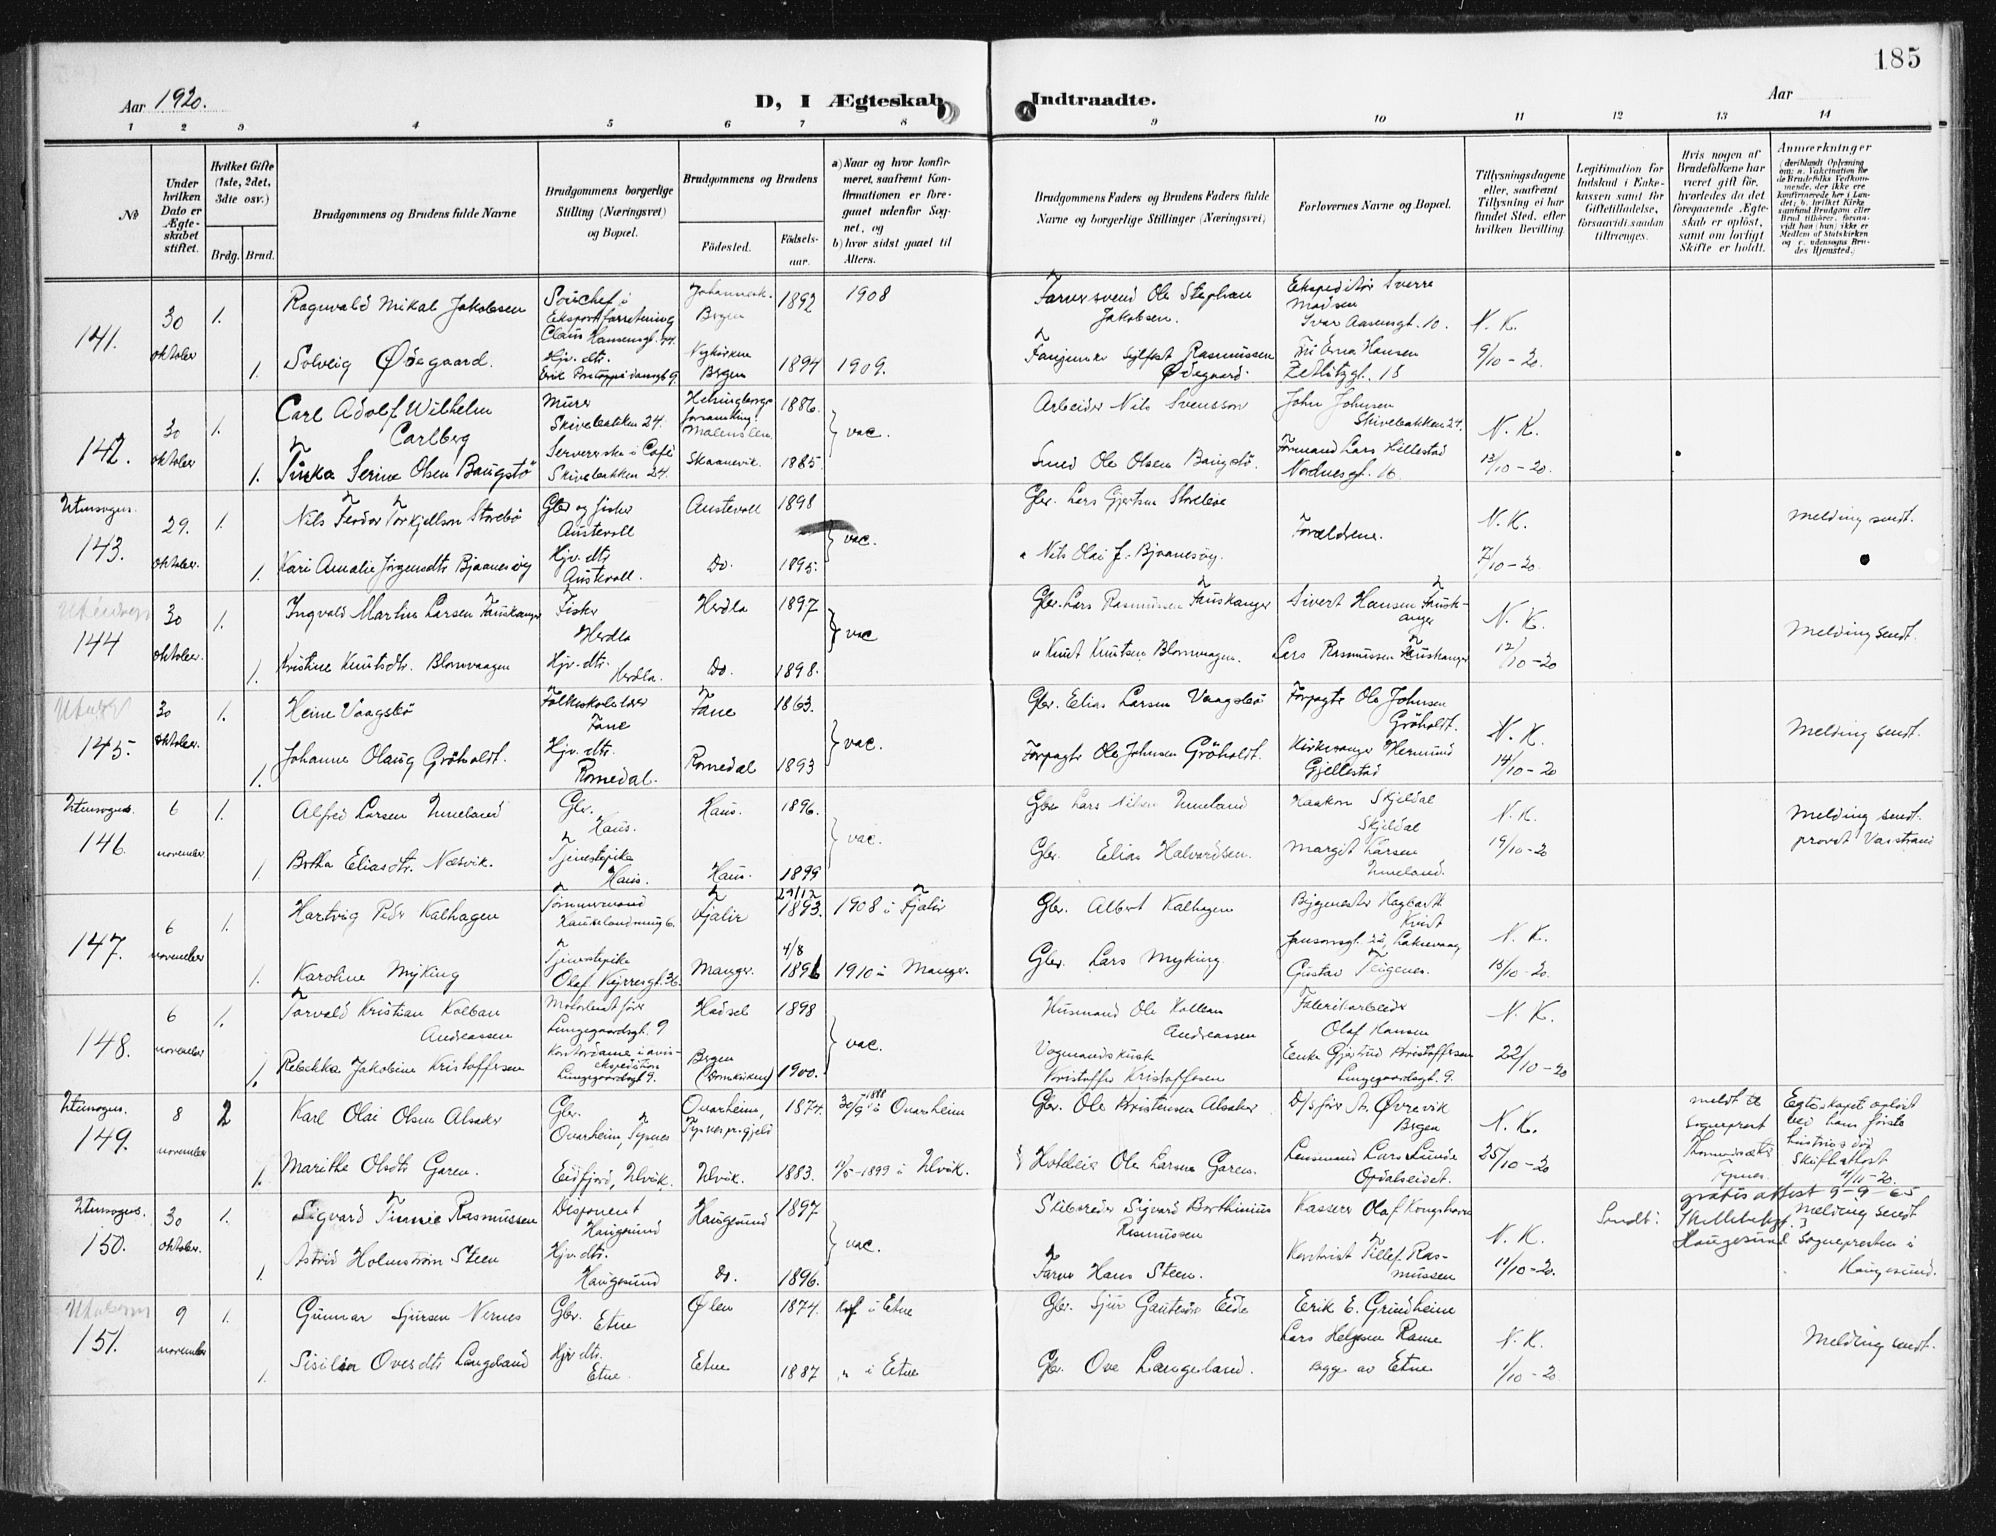 185
Aar 1920.
D, I Ægteskab Indtraadte.
Aar
1 2 3 4 5 6 7 8 9 10 11 12 13 14
№
Under hvilken Dato er Ægteskabet stiftet.
Hvilket Gifte (1ste, 2det, 3die osv.)
Brdg. Brud.
Brudgommens og Brudens fulde Navne
Brudgommens borgerlige Stilling (Næringsvei) og Bopæl.
Brudgommens og Brudens
Födested.
Födselsaar.
a) Naar og hvor konfirmeret, saafremt Konfirmationen er foregaaet udenfor Sognet, og
b) hvor sidst gaaet til Alters.
Brudgommens Faders og Brudens Faders fulde Navne og borgerlige Stillinger (Næringsvei)
Forlovernes Navne og Bopæl.
Tillysningsdagene eller, saafremt Tillysning ei har fundet Sted, efter hvilken Bevilling.
Legitimation for Indskud i Enkekassen samt for Giftetilladelse, forsaavidt saadan tiltrænges.
Hvis nogen af Brudefolkene har været gift för, hvorledes da det foregaaende Ægteskab er oplöst, samt om lovligt Skifte er holdt.
Anmærkninger
141. 30 oktober 1. Ragnvald Mikal Jakobsen Souchef i Eksportforretning Claus Hansensgt. 44 Johannesk. Bergen 1892 1908 Farversvend Ole Stephan Jakobsen. Ekspeditör Sverre Madsen Ivar Aasensgt. 10. N. K.
1. Solveig Ödegaard. Hjv. dtr. Erik Pontoppidansgt 9. Nykirken Bergen 1894 1909. Rasmussen Ödegaard. Erna Hansen Zetlitzgt. 15 9/10-20.
142. 30 oktober 1. Carl Adolf Wilhelm Carlberg Murer Skivebakken 24. 1886. } vac. Arbeider Nils Svensson John Johnsen Skivebakken 24. N. K.
1. Serine Olsen Baugstö Servererska i Café Skivebakken 24. Skaanevik. 1885. Smed Ole Olsen Baugstö. Formand Lars Hillestad Nordnesgt. 16 13/10-20.
Utensogns. 143. 29. oktober. 1. Nils Feodor Torkjellsen Storebö Gbr og fisker Austevoll Austevoll 1898 } vac. Gbr. Lars Gjertsen Storebö Forældrene. N. K. Melding sendt.
1. Kari Amalie Jörgensdtr Bjaanesöy Hjv. dtr. Austevoll. Do. 1895. " Nils Olai J. Bjaanesöy. 7/10-20.
144 30 oktober. 1. Ingvald Martin Larsen Fauskanger Fisker Herdla Herdla 1897 } vac Gbr. Lars Rasmussen Fauskanger Sivert Hansen Fauskanger N. K. Melding sendt.
1. Kristine Knutsdtr. Blomvaagen Hjv. dtr. Herdla. Do. 1898. " Knut Knutsen Blomvaagen. Lars Rasmussen Fauskanger 12/10-20
145. 30 oktober. 1. Heine Vaagsbö Folkeskolelærer Fane Fane 1863. } vac. Gbr. Elias Larsen Vaagsbö Forpagter Ole Johnsen Gröholdt. N. K. Melding sendt.
1. Johanne Olaug Gröholdt. Hjv. dtr. Romedal. Romedal 1893 Forpagter Ole Johnsen Gröholdt. Kirkesanger Hermund Gjellestad 14/10-20
Utensogns. 146. 6 november 1. Alfred Larsen Gbr. Haus. Haus. 1896. } vac. Gbr Lars Nilsen Haakon Skjeldal Skjeldal N. K. Melding sendt.
1. Brtha Eliasdtr. Næsvik. Tjenestepike Haus. Haus. 1899 Gbr. Elias Halvardsen. Margit Larsen 19/10-20
147. 6 november 1. Hartvig Peder Kalhagen Tömmermand Haukelandsvei 6. Fjaler 29/12 1893. 1908 i Fjaler Gbr. Albert Kalhagen Bygmester Hagbarth Kvist Jansonsgt. 22, Laksevaag N. K.
1. Karoline Myking Tjenestepike Olaf Kyrresgt. 36. Manger. 4/8 1896 1910 i Manger. Gbr. Lars Myking. Gustav Teigenes. 15/10-20.
148. 6 november 1. Torvald Kristian Kolban Andreassen Motorbaatförer Lungegaardsgt. 9 Hadsel 1898 } vac. Husmand Ole Kolban Andreassen Fabrikarbeider Olaf Hansen N. K.
1. Rebekka Jakobine Kristoffersen Kontordame i avisekspedition Lungegaardsgt 9. Bergen (Domkirken) 1900. Vognmandskusk Kristoffer Kristoffersen Enke Gjertrud Kristoffersen Lungegaardsgt. 9. 22/10-20
Utensogns. 149. 8 november 2 Karl Olai Olsen Alsaker Gbr. Ovarheim, Tysnes Ovarheim, Tysnes pr.gjeld 1874. 30/9 1888 i Ovarheim Gbr. Ole Kristensen Alsaker D/s förer A. Övrevik Bergen N. K. meldt til Sogneprest Tysnes. Egteskapet oplöst ved hans förste hustrus död Skifteattest 4/11-20.
1. Marithe Olsdtr Garen. Eidfjord, Ulvik. Ulvik. 1883. 4/5-1899 i Ulvik. Hoteleier Ole Larsen Garen. Lensmand Lars Lunde Opdalseidet. 25/10-20
gratis attest 9-9-65
Utensogns. 150. 30 oktober. 1. Sigvard Rasmussen Disponent Haugesund Haugesund 1897 } vac. Skibsreder Sigvard Berthinius Rasmussen Kasserer Olaf Kongshavn N. K. Sendt: Haugesund Melding sendt Sognepresten i Haugesund.
1. Astrid Holmström Steen Hjv. dtr. Haugesund Do. 1896. Farver Hans Steen. Tillef Rasmussen 11/10-20.
151. 9 november 1. Gunnar Sjursen Nernes Gbr. Etne Ölen 1874. Kf i Etne Gbr. Sjur Gautesön Eide Erik E. Grindheim N. K. Melding sendt.
1. Oversdtr Langeland Hjv dtr. Etne. Etne 1887 " i Etne Gbr. Ove Langeland. Lars Helgesen Rame begge av Etne 1/10-20